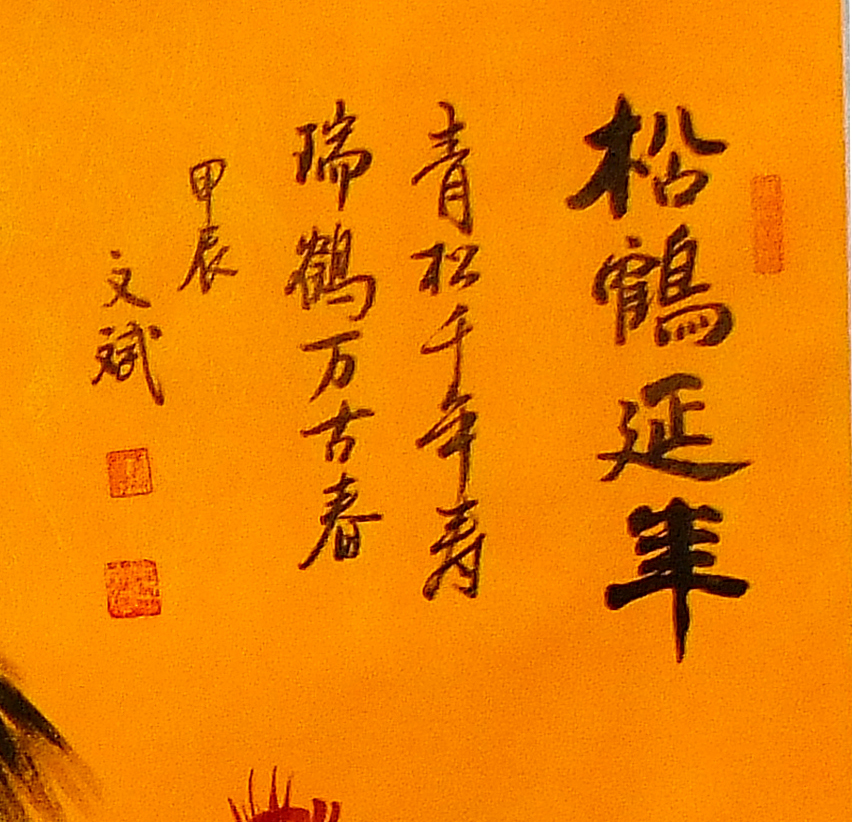 松鶴延年
青松千年寿
瑞鶴万古春
甲辰
文斌